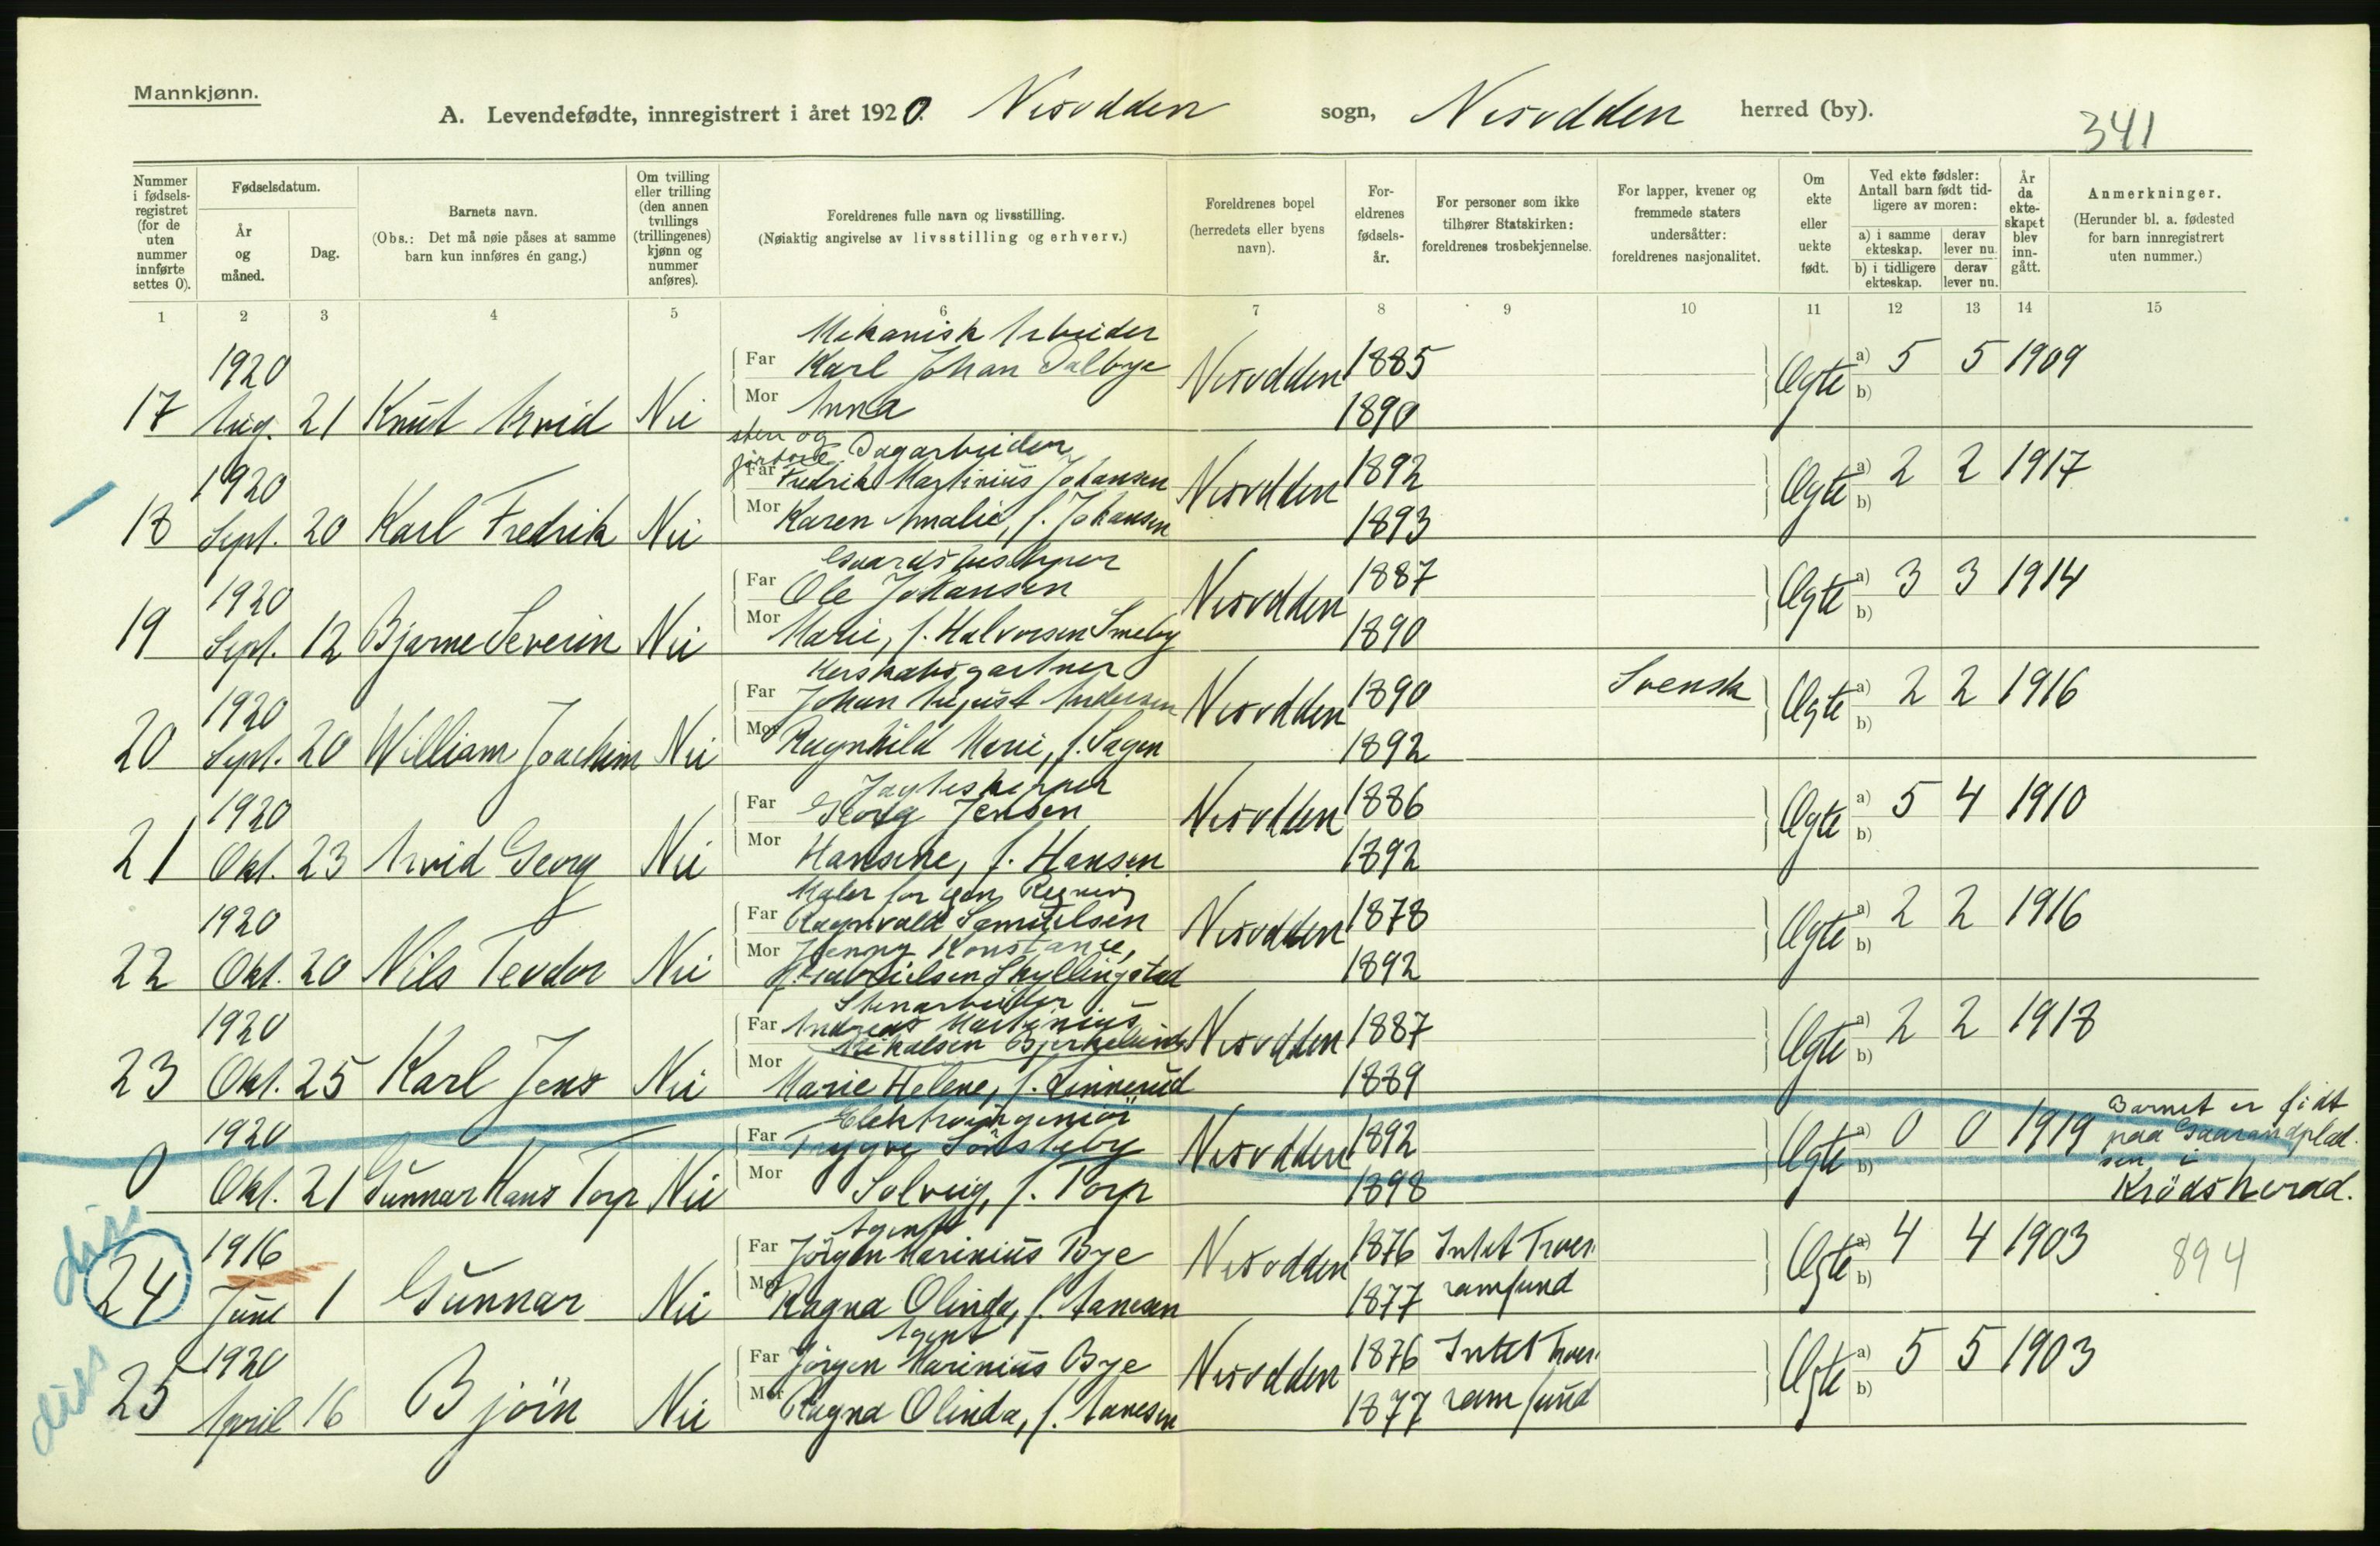 Mannkjønn.
A. Levendefødte, innregistrert i året 1920. Nesodden sogn, Nesodden herred (by).
341
Nummer i fødselsregistret (for de uten nummer innførte settes 0).
Fødselsdatum.
År og måned.
Dag.
Barnets navn.
(Obs.: Det må nøie påses at samme barn kun innføres én gang.)
Om tvilling eller trilling (den annen tvillings (trillingenes) kjønn og nummer anføres).
Foreldrenes fulle navn og livsstilling.
(Nøiaktig angivelse av livsstilling og erhverv.)
Foreldrenes bopel (herredets eller byens navn).
Foreldrenes fødselsår.
For personer som ikke tilhører Statskirken: foreldrenes trosbekjennelse.
For lapper, kvener og fremmede staters undersåtter: foreldrenes nasjonalitet.
Om ekte eller uekte født.
Ved ekte fødsler: Antall barn født tidligere av moren:
a) i samme ekteskap.
derav lever nu.
b) i tidligere ekteskap.
derav lever nu.
År da ekteskapet blev inngått.
Anmerkninger.
(Herunder bl. a. fødested for barn innregistrert uten nummer.)
1 2 3 4 5 6 7 8 9 10 11 12 13 14 15
Mekanisk Arbeider
1920 Far Karl Johan Dalbye Nesodden 1885 Ægte a) 5 5 1909
17 Aug. 21 Knut Arvid Nei Mor Anna 1890 b)
sten og jordarb. Dagarbeider
1920 Far Fredrik Martinius Johansen Nesodden 1892 Ægte a) 2 2 1917
18 Sept. 20 Karl Fredrik Nei Mor Karen Amalie, f. Johansen 1893 b)
Gaardsbestyrer
1920 Far Ole Johansen Nesodden 1887 Ægte a) 3 3 1914
19 Sept. 12 Bjarne Severin Nei Mor Marie, f. Halvorsen Smeby 1890 b)
Herskabsgartner
1920 Far Johan August Andersen Nesodden 1890 Svensk Ægte a) 2 2 1916
20 Sept. 20 William Joachim Nei Mor Ragnhild Marie, f. Sagen 1892 b)
Jagteskipper
1920 Far Georg Jensen Nesodden 1886 Ægte a) 5 4 1910
21 Okt. 23 Arvid Georg Nei Mor Hansine, f. Hansen 1892 b)
Maler for egen Regning
1920 Far Ragnvald Samuelsen Nesodden 1878 Ægte a) 2 2 1916
Mor Jenny Konstance,
22 Okt. 20 Nils Teodor Nei f. Gabrielsen Skyllingstad 1892 b)
Stenarbeider
1920 Far Andreas Martinius Mikalsen Bjerkelund Nesodden 1887 Ægte a) 2 2 1918
23 Okt. 25 Karl Jens Nei Mor Marie Helene, f. Linnerud 1889 b)
Elektroingeniör
1920 Far Trygve Sönsteby Nesodden 1892 Ægte a) 0 0 1919 Barnet er födt paa
0 Okt. 21 Gunnar Hans Torp Nei Mor Solveig, f. Torp 1898 b) i Krödsherad.
Agent
1916 Far Jörgen Marinius Bye Nesodden 1876 Intet Trossamfund Ægte a) 4 4 1903 894
24 June 1 Gunnar Nei Mor Ragna Olinda, f. Aanesen 1877 b)
Agent
1920 Far Jörgen Marinius Bye Nesodden 1876 Intet Trossamfund Ægte a) 5 5 1903
25 April 16 Björn Nei Mor Ragna Olinda, f. Aanesen 1877 b)
diss
diss